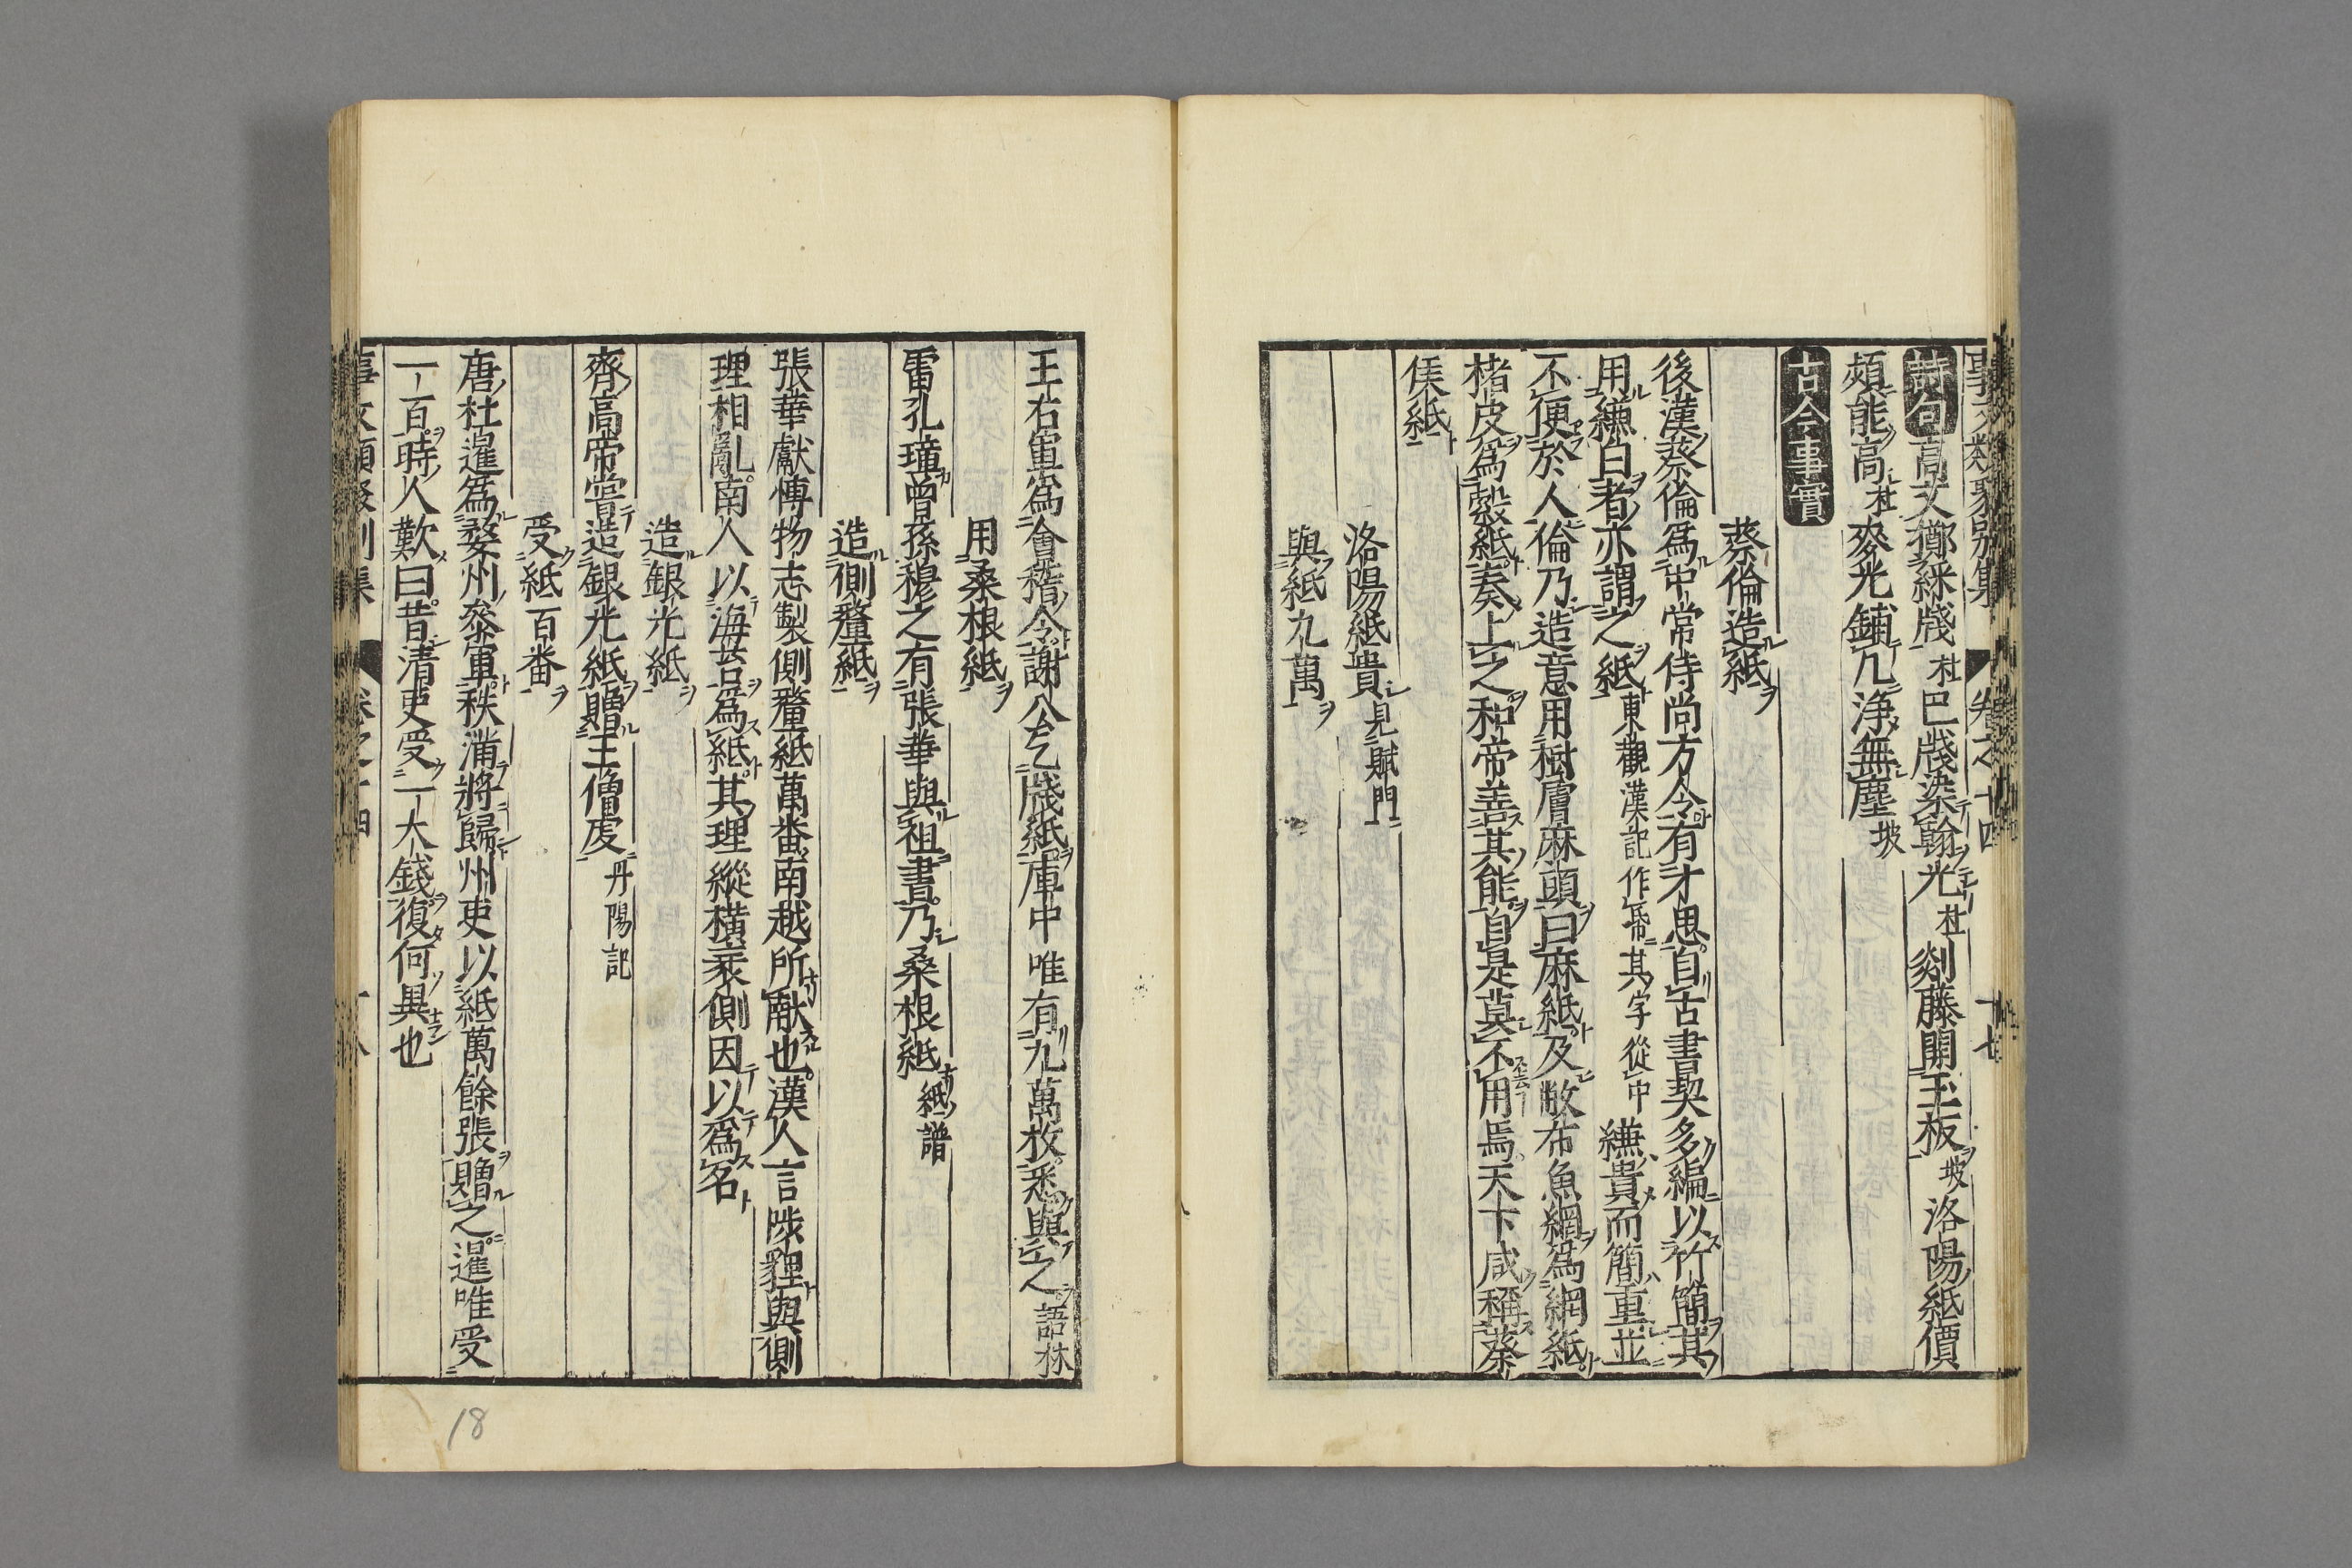 事文類聚別集 卷之十四 十七
詩句 高文擲綵牋杜巴牋染翰光杜剡藤開玉板坡洛陽紙價
頗能高杜麥光鋪几淨無塵坡
古今事實
蔡倫造紙
後漢蔡倫爲中常侍尚方令有才思自古書契多編以竹簡其
用縑白者亦謂之紙東觀漢記作帋其字從巾縑貴而簡重並
不便於人倫乃造意用樹膚麻頭曰麻紙及敝布魚網爲網紙
楮皮爲榖紙奏上之和帝善其能自是莫不用焉天下咸稱蔡
侯紙
洛陽紙貴見賦門
與紙九萬
王右軍爲會稽令謝公乞牋紙庫中唯有九萬枚悉與之語林
用桑根紙
雷孔璋曾孫穆之有張華與祖書乃桑根紙紙譜
造側釐紙
張華獻博物志製側釐紙萬畨南越所献也漢人言陟貍與側
理相亂南人以海苔爲紙其理縱橫衺側因以爲名
造銀光紙
齊高帝嘗造銀光紙贈王僧虔丹陽記
受紙百畨
唐杜暹爲婺州叅軍秩滿將歸州吏以紙萬餘張贈之暹唯受
一百時人歎曰昔清吏受一大錢復何異也
事文類聚別集 卷之十四 十八
18